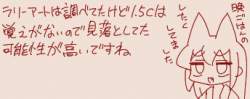 ラリーアートは調べてたけど1.5Cは
覚えがないので見落としてた
可能性が高いですね
晩ごはんの
したく
してました